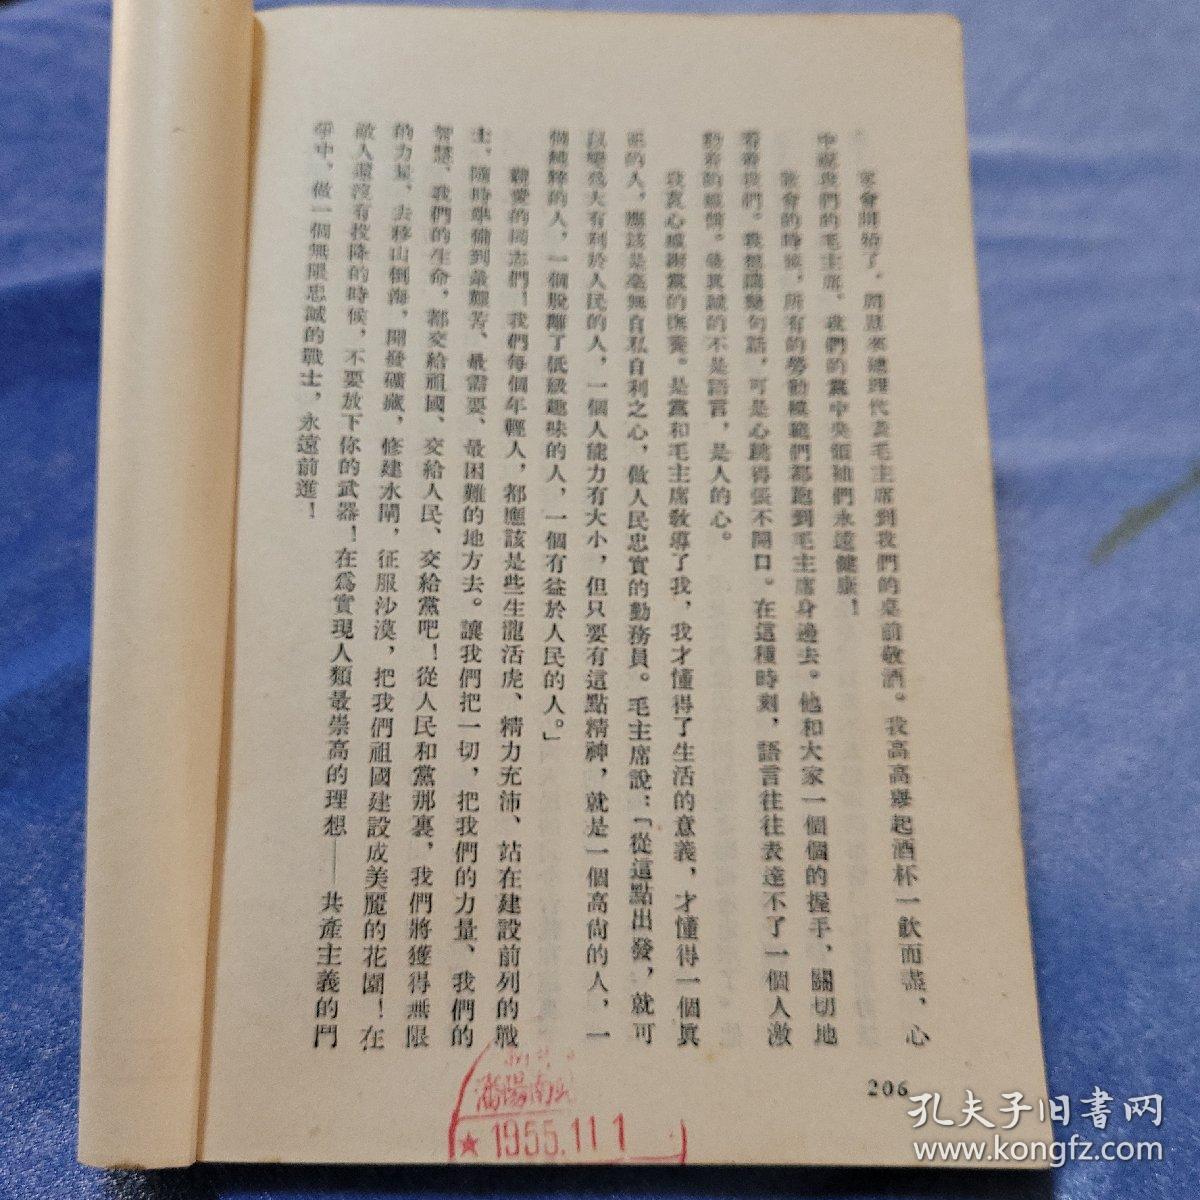 宴會開始了，周恩來總理代表毛主席到我們的桌前敬酒。我高高舉起酒杯一飲而盡，心
中祝我們的毛主席、我們的黨中央領袖們永遠健康！
散會的時候，所有的勞動模範們都跑到毛主席身邊去。他和大家一個個的握手，關切地
看着我們。我想講幾句話，可是心跳得張不開口。在這種時刻，語言往往表達不了一個人激
動着的感情。最真誠的不是語言，是人的心。
我衷心感謝黨的撫養。是黨和毛主席敎導了我，我才懂得了生活的意義，才懂得一個眞
正的人，應該是毫無自私自利之心，做人民忠實的勤務員。毛主席說：「從這點出發，就可
以變爲大有利於人民的人，一個人能力有大小，但只要有這點精神，就是一個高尙的人，一
個純粹的人，一個脫離了低級趣味的人，一個有益於人民的人。」
親愛的同志們！我們每個年輕人，都應該是些生龍活虎、精力充沛、站在建設前列的戰
士，隨時準備到最艱苦、最需要、最困難的地方去。讓我們把一切，把我們的力量、我們的
智慧、我們的生命，都交給祖國、交給人民、交給黨吧！從人民和黨那裏，我們將獲得無限
的力量，去移山倒海，開發礦藏，修建水閘，征服沙漠，把我們祖國建設成美麗的花園！在
敵人還沒有投降的時候，不要放下你的武器！在爲實現人類最崇高的理想——共產主義的鬥
爭中，做一個無限忠誠的戰士，永遠前進！
206
瀋陽南
★1955.11 1
孔夫子旧书网
www.kongfz.com